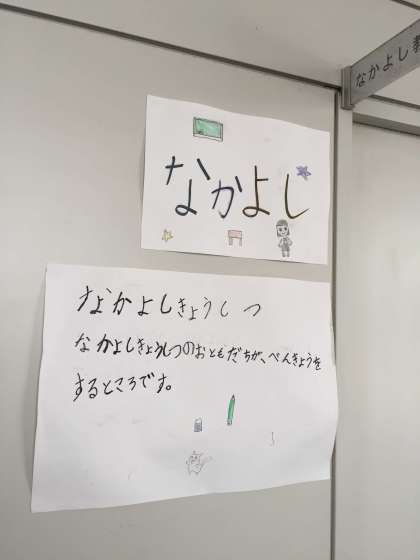 なかよし教
なかよし
なかよしきょうしつ
なかよしきょうしつのおともだちが、べんきょうを
するところです。